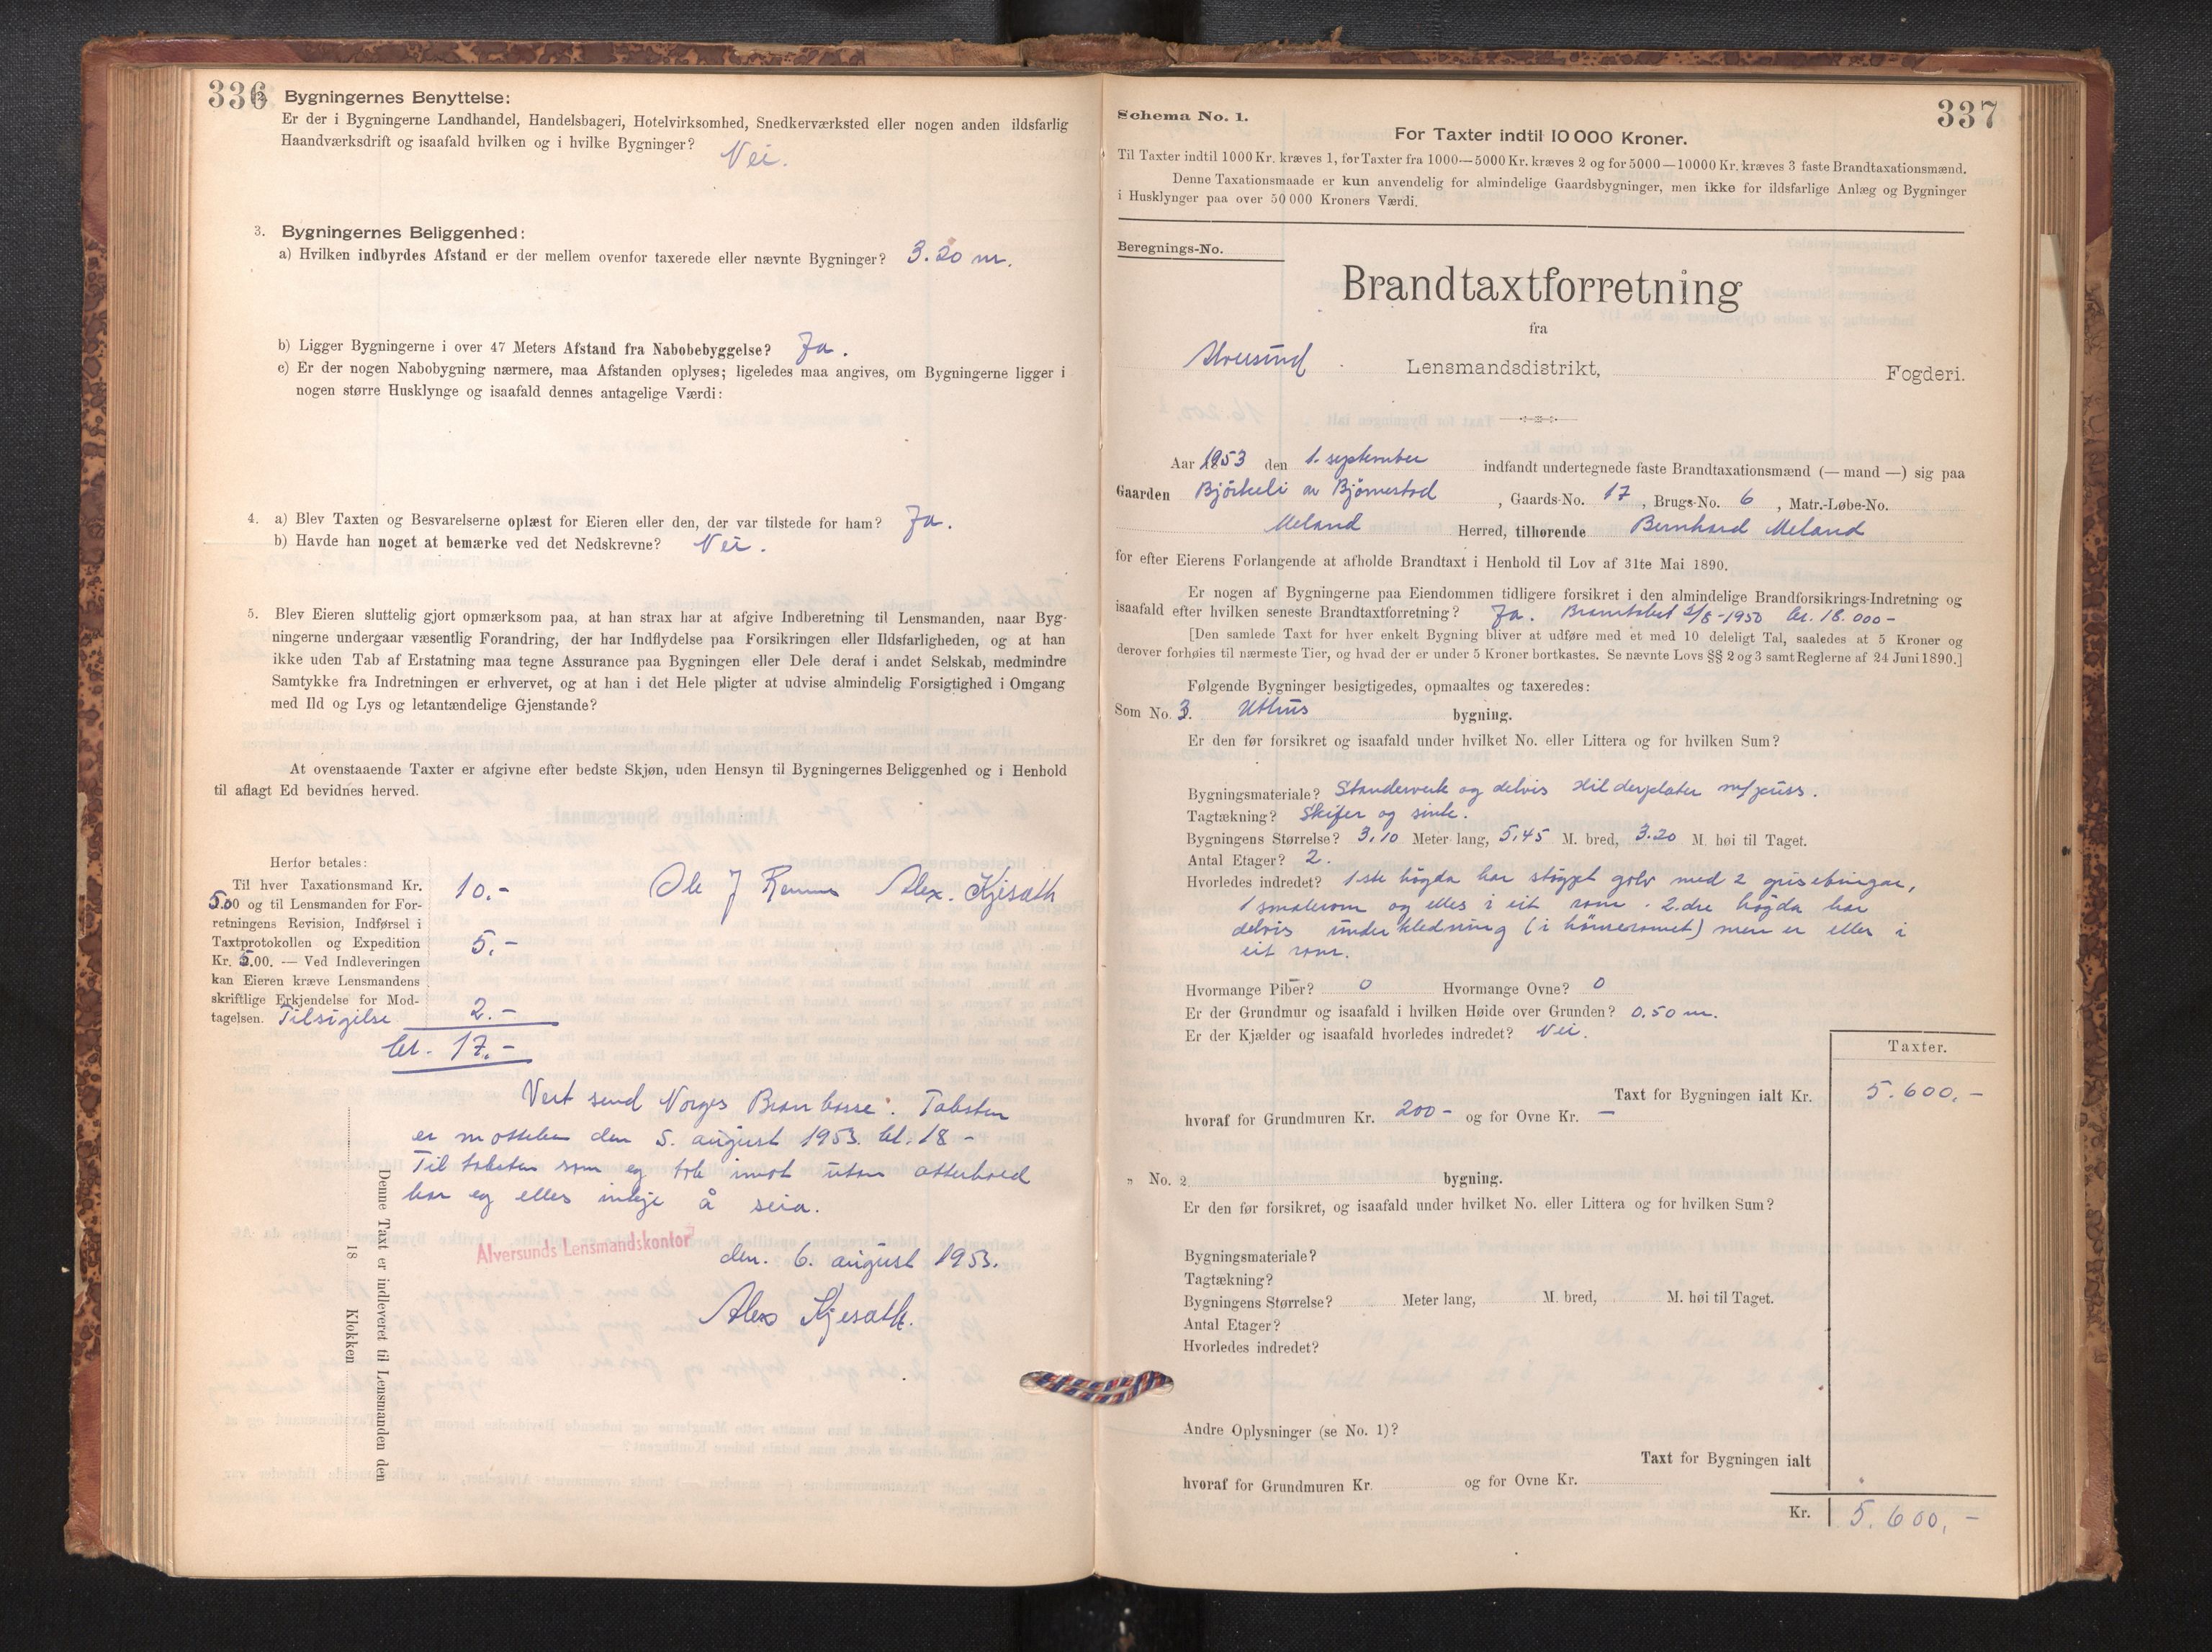 336
2. Bygningernes Benyttelse:
Er der i Bygningerne Landhandel, Handelsbageri, Hotelvirksomhed, Snedkerværksted eller nogen anden ildsfarlig
Haandværksdrift og isaafald hvilken og i hvilke Bygninger? Nei.
3. Bygningernes Beliggenhed:
a) Hvilken indbyrdes Afstand er der mellem ovenfor taxerede eller nævnte Bygninger? 3.20 m.
b) Ligger Bygningerne i over 47 Meters Afstand fra Nabobebyggelse? Ja.
c) Er der nogen Nabobygning nærmere, maa Afstanden oplyses; ligeledes maa angives, om Bygningerne ligger i
nogen større Husklynge og isaafald dennes antagelige Værdi:
4. a) Blev Taxten og Besvarelserne oplæst for Eieren eller den, der var tilstede for ham? Ja.
b) Havde han noget at bemærke ved det Nedskrevne? Nei.
5. Blev Eieren sluttelig gjort opmærksom paa, at han strax har at afgive Indberetning til Lensmanden, naar Byg-
ningerne undergaar væsentlig Forandring, der har Indflydelse paa Forsikringen eller Ildsfarligheden, og at han
ikke uden Tab af Erstatning maa tegne Assurance paa Bygningen eller Dele deraf i andet Selskab, medmindre
Samtykke fra Indretningen er erhvervet, og at han i det Hele pligter at udvise almindelig Forsigtighed i Omgang
med Ild og Lys og letantændelige Gjenstande?
At ovenstaaende Taxter er afgivne efter bedste Skjøn, uden Hensyn til Bygningernes Beliggenhed og i Henhold
til aflagt Ed bevidnes herved.
Herfor betales:
Til hver Taxationsmand Kr. 10.-
5.00 og til Lensmanden for For-
retningens Revision, Indførsel i
Taxtprotokollen og Expedition 5.-
Kr. 5.00. — Ved Indleveringen
kan Eieren kræve Lensmandens
skriftlige Erkjendelse for Mod-
tagelsen. Tilsigelse 2.-
kr. 17.-
Ole J Alex. Kjesath
Vert send Norges Brankasse. Taksten
er motteken den 5. august 1953. kl. 18 -
Til taksten som eg tok imot utan atterhald
har eg elles inkje å seia.
Alversunds Lensmandskontor
den. 6. august 1953.
Alex Kjesath.
Denne Taxt er indleveret til Lensmanden den
18 Klokken
337
Schema No. 1.
For Taxter indtil 10000 Kroner.
Til Taxter indtil 1000 Kr. kræves 1, før Taxter fra 1000—5000 Kr. kræves 2 og for 5000—10000 Kr. kræves 3 faste Brandtaxationsmænd.
Denne Taxationsmaade er kun anvendelig for almindelige Gaardsbygninger, men ikke for ildsfarlige Anlæg og Bygninger
i Husklynger paa over 50000 Kroners Værdi.
Beregnings-No.
Brandtaxtforretning
fra
Alversund Lensmandsdistrikt, Fogderi.
Aar 1953 den 1. september indfandt undertegnede faste Brandtaxationsmænd (— mand —) sig paa
Gaarden Björkeli av Bjørnestad, Gaards-No. 17, Brugs-No. 6, Matr.-Løbe-No.
Meland Herred, tilhørende Bernhard Meland
for efter Eierens Forlangende at afholde Brandtaxt i Henhold til Lov af 31te Mai 1890.
Er nogen af Bygningerne paa Eiendommen tidligere forsikret i den almindelige Brandforsikrings-Indretning og
isaafald efter hvilken seneste Brandtaxtforretning? Ja. Branntakst 2/8-1950 kr. 18.000-
[Den samlede Taxt for hver enkelt Bygning bliver at udføre med et med 10 deleligt Tal, saaledes at 5 Kroner og
derover forhøies til nærmeste Tier, og hvad der er under 5 Kroner bortkastes. Se nævnte Lovs §§ 2 og 3 samt Reglerne af 24 Juni 1890.]
Følgende Bygninger besigtigedes, opmaaltes og taxeredes:
Som No. 3. Uthus bygning.
Er den før forsikret og isaafald under hvilket No. eller Littera og for hvilken Sum?
Bygningsmateriale? Standerverk og delvis hilderplater m/puss.
Tagtækning? Skifer og sink.
Bygningens Størrelse? 3,10 Meter lang, 5,45 M. bred, 3.20 M. høi til Taget.
Antal Etager? 2.
Hvorledes indredet? 1ste högda har støypt golv med 2 grisebingar,
1 smalerom og elles i eit rom. 2.dre högda har
delvis underkledning (i hönseromet) men er elles i
eit rom.
Hvormange Piber? 0 Hvormange Ovne? 0
Er der Grundmur og isaafald i hvilken Høide over Grunden? 0.50 m.
Er der Kjælder og isaafald hvorledes indredet? Nei.
Taxter.
Taxt for Bygningen ialt Kr. 5.600,-
hvoraf for Grundmuren Kr. 200- og for Ovne Kr. —
„ No. 2 bygning.
Er den før forsikret, og isaafald under hvilket No. eller Littera og for hvilken Sum?
Bygningsmateriale?
Tagtækning?
Bygningens Størrelse? Meter lang, M. bred, M. høi til Taget.
Antal Etager?
Hvorledes indredet?
Andre Oplysninger (se No. 1)?
Taxt for Bygningen ialt
hvoraf for Grundmuren Kr. og for Ovne Kr.
Kr. 5.600,-